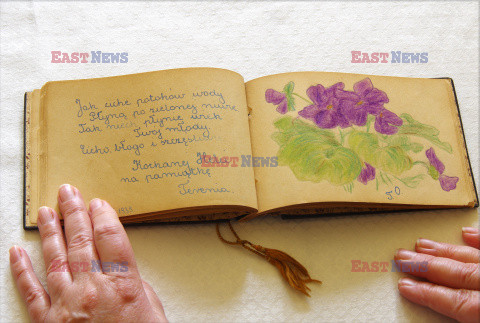 Jak ciche potoków wody
Płyną po zielonej niwie
Tak niech płynie wiek
Twój młody.
Cicho błogo i szczęśliwie
Kochanej
na pamiątkę
Terenia.
TO
EAST NEWS
EAST NEWS
EAST NEWS
EAST NEWS
EAST NEWS
EAST NEWS